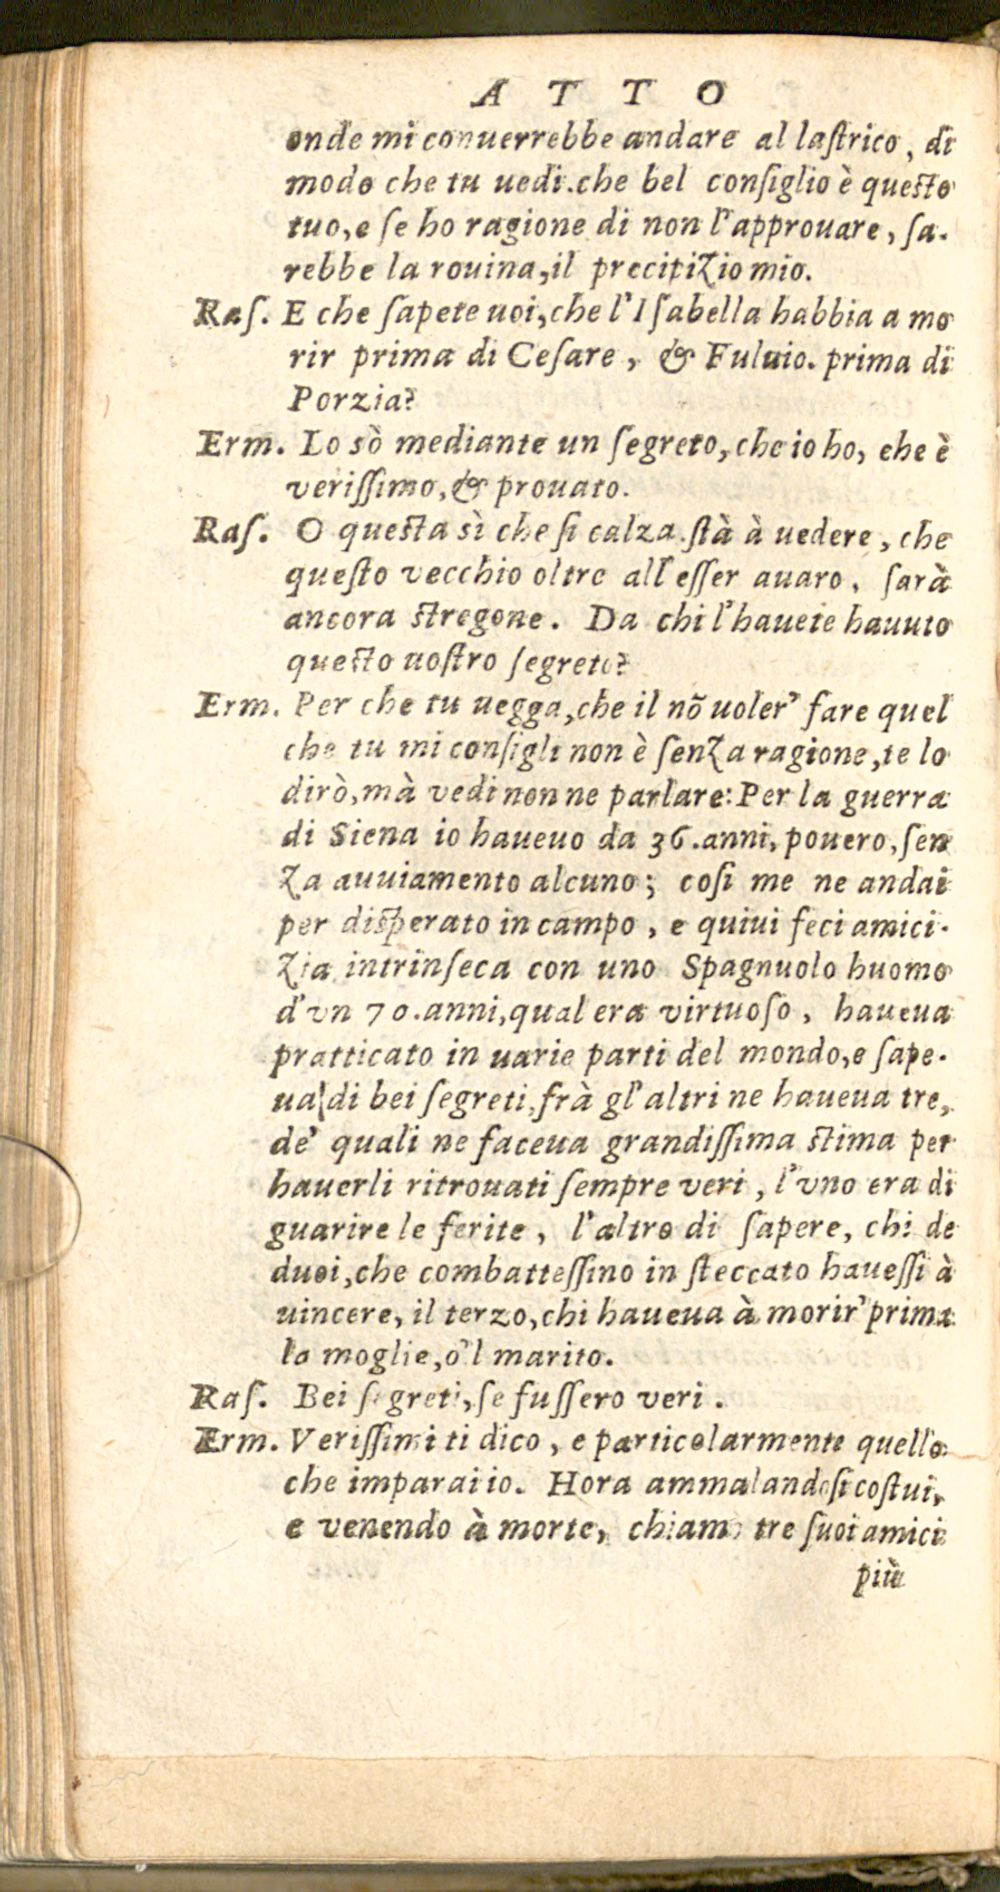 ATTO
onde mi conuerrebbe andare al laſtrico, di
modo che tu uedi.che bel conſiglio è queſto
tuo,e ſe ho ragione di non l'approuare, ſa-
rebbe la rouina,il precitiZio mio.
Raſ. E che ſapete uoi,che l'Iſabella habbia a mo
rir prima di Ceſare, & Fuluio. prima di
Porzia?
Erm. Lo sò mediante un ſegreto, che io ho, che è
veriſſimo, & prouato.
Raſ. O queſta sì che ſi calza. ſtà à uedere, che
queſto vecchio oltre all'eſſer auaro, ſarà
ancora ſtregone. Da chi l'hauete hauuto
queſto uoſtro ſegreto?
Erm. Per che tu uegga,che il nõ uoler' fare quel
che tu mi conſigli non è ſenZa ragione,te lo
dirò,mà vedi non ne parlare: Per la guerra
di Siena io haueuo da 36.anni, pouero, ſen
Za auuiamento alcuno; coſi me ne andai
per diſperato in campo, e quiui feci amici-
Zia intrinſeca con uno Spagnuolo huomo
d'vn 70.anni,qual era virtuoſo, haueua
pratticato in uarie parti del mondo,e ſape-
ua di bei ſegreti,frà gl'altri ne haueua tre,
de' quali ne faceua grandiſſima ſtima per
hauerli ritrouati ſempre veri, l'vno era di
guarire le ferite, l'altro di ſapere, chi de
duoi,che combatteſſino in ſteccato haueſſi à
uincere, il terzo,chi haueua à morir' prima
la moglie,ò'l marito.
Raſ. Bei ſegreti, ſe fuſſero veri.
Erm. Veriſſimi ti dico, e particolarmente quello
che imparai io. Hora ammalandoſi coſtui,
e venendo à morte, chiamò tre ſuoi amici
più